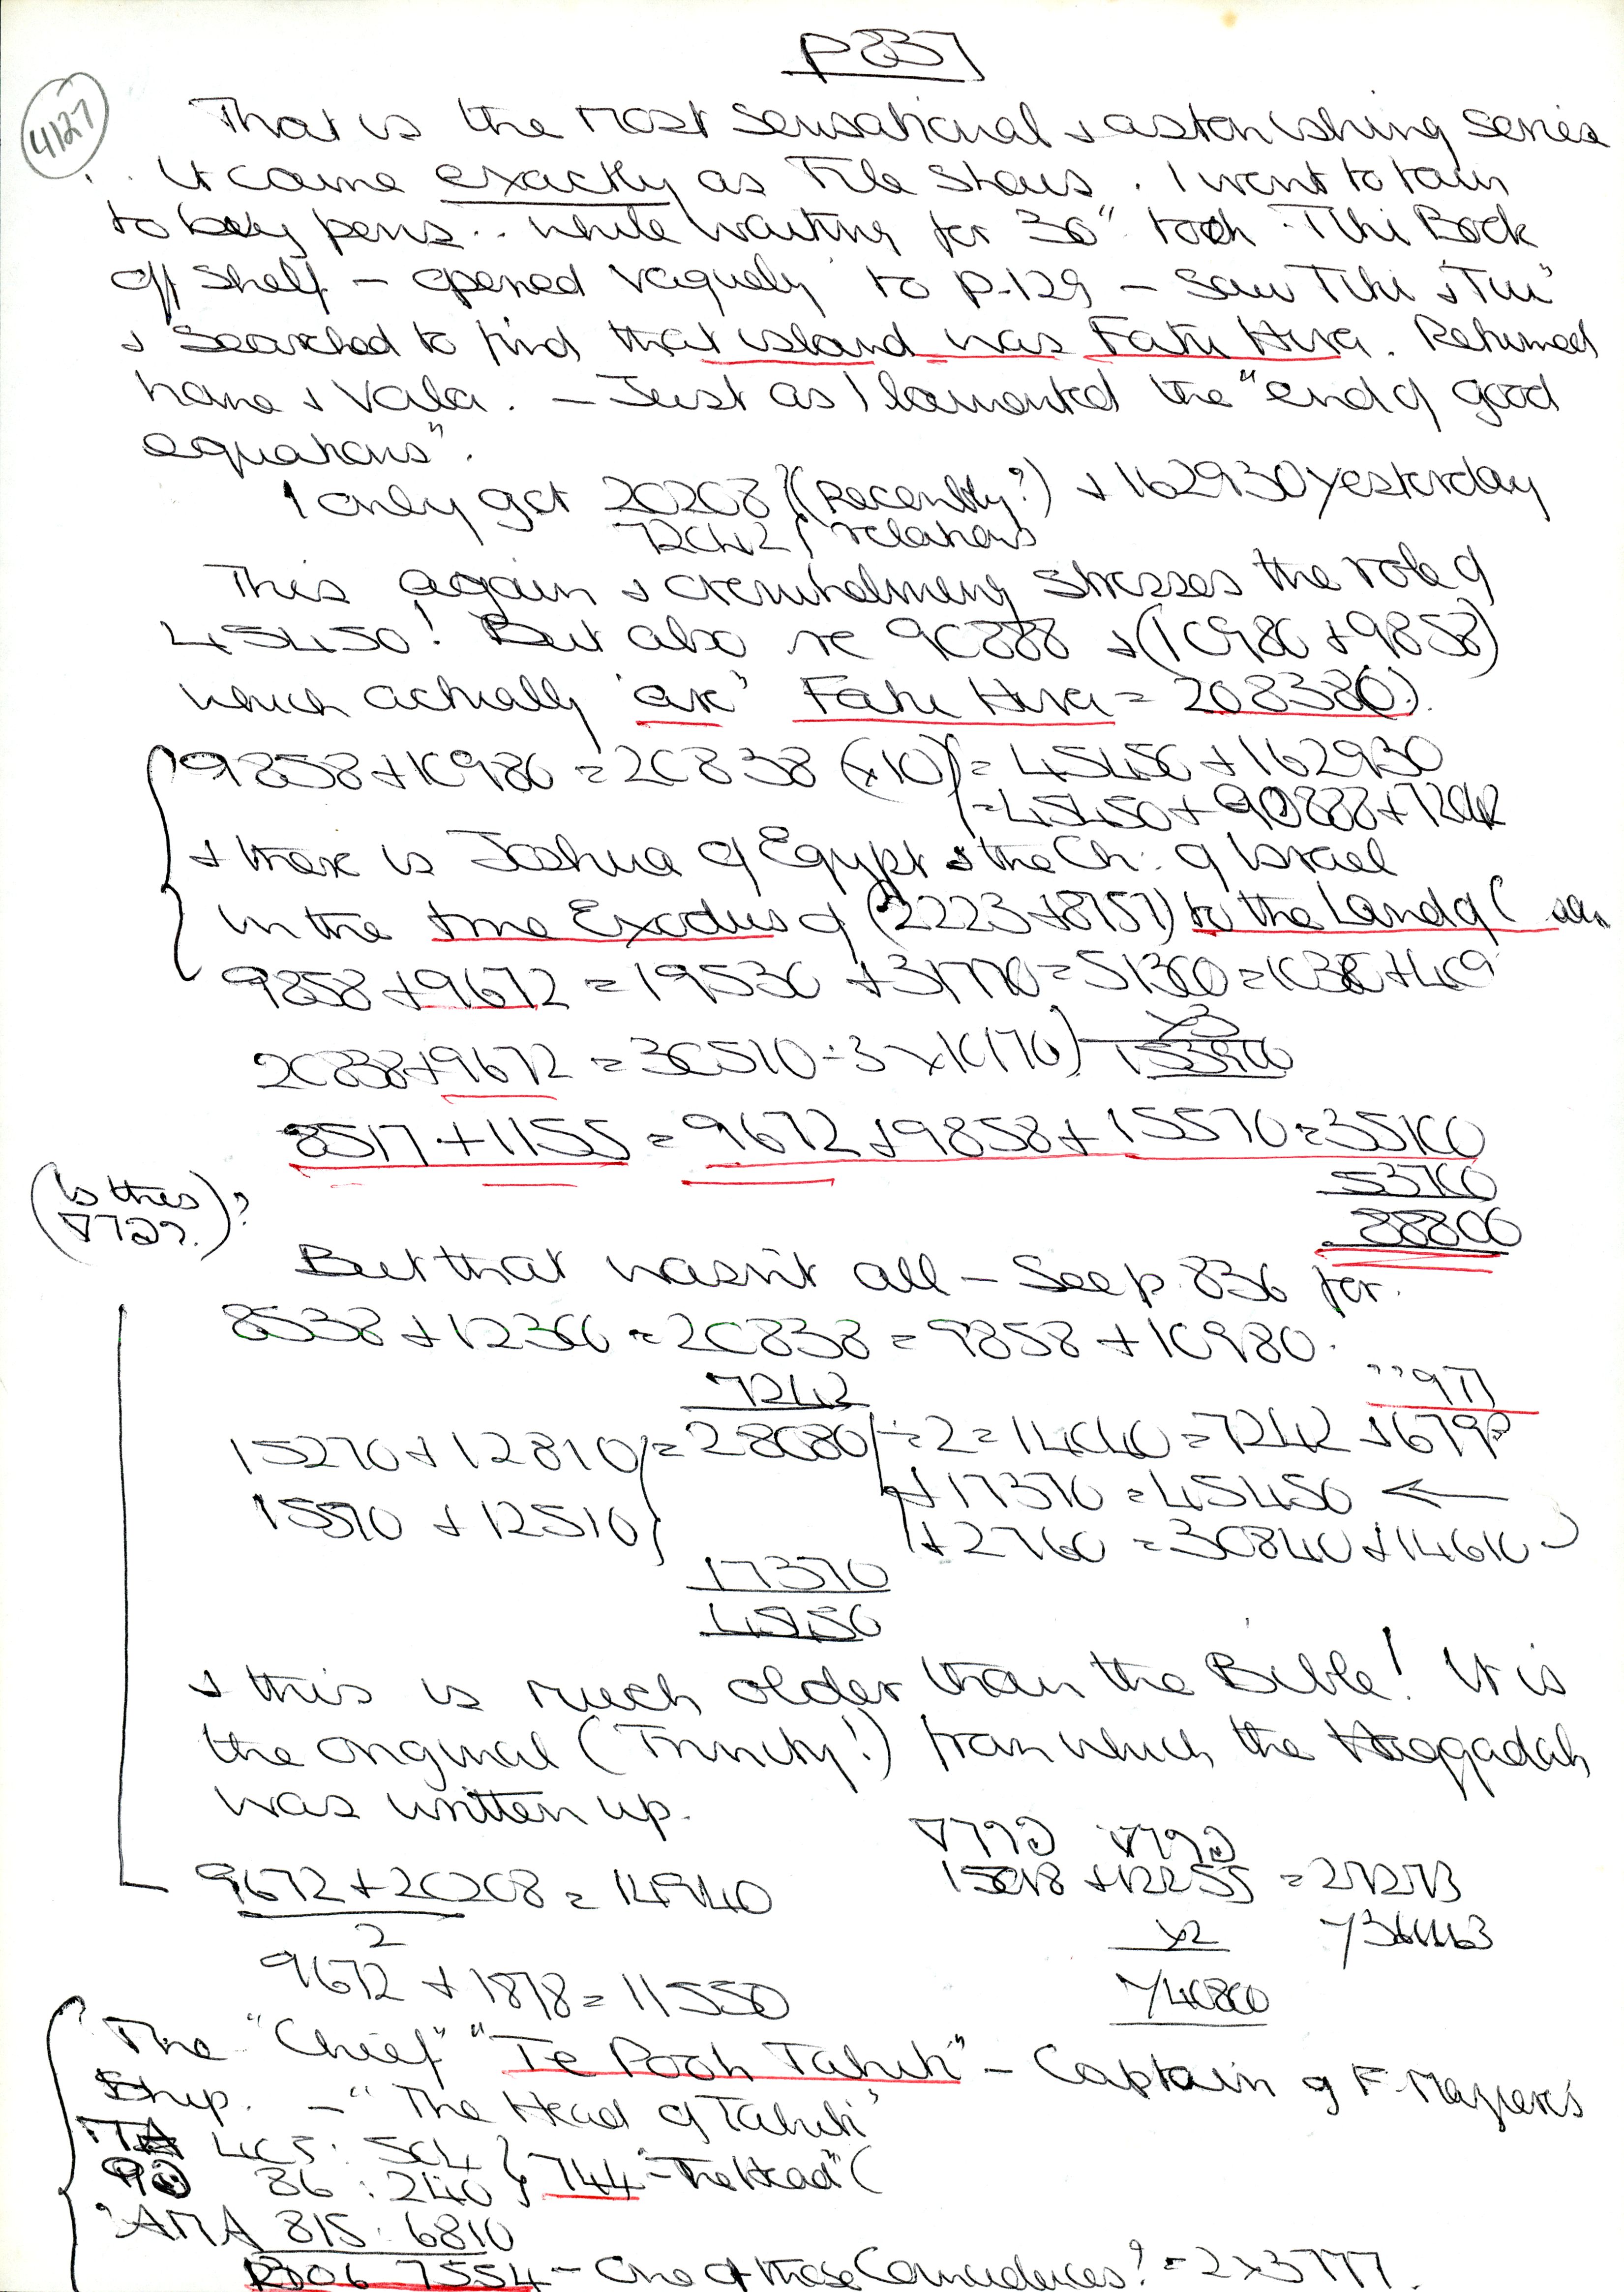 p 837
4127
That is the most sensational & astonishing series
.. It came exactly as File shows. I went to town
to buy pens.. while waiting for 30" took Tiki Book
off shelf – opened vaguely to p.129 – saw Tiki & Tui"
& searched to find that island was Fatu Hiva. Returned
home & Vala. – Just as I lamented the "end of good
equations".
I only got 20208 (Recently?) & 162930 yesterday
72042 relations
This again & overwhelming stresses the role of
45450! But also re 90888 & (10980 + 9858)
which actually 'are' Fatu Hiva = 208380).
9858 + 10980 = 20838 (x10) = 45450 + 162930
= 45450 + 90888 + 72042
& there is Joshua of Egypt & the Ch. of Israel
in the time Exodus of (2223 + 8757) to the Land of
9858 + 9672 = 19530 + 31770 = 51300 =
20838 + 9672 = 30510 ÷ 3 x 10170) 153900
x3
8517 + 1155 = 9672 + 9858 + 15570 = 35100
53700
88800
(Is this)?
But that wasn't all – See p. 836 for.
8538 + 12300 = 20838 = 9858 + 10980.
7242
15270 + 12810 = 28080 ÷ 2 = 14040 = 7242 + 6798
15570 + 12510
+ 17370 = 45450 ←
+ 2760 = 30840 + 14610
17370
45450
& this is much older than the Bible! It is
the original (Trinity!) from which the Haggadah
was written up.
9672 + 20208 = 14940
2
15018 + 12255 = 27273
x2
9672 + 1878 = 11550
The "Chief" "Te Pooh Tahiti" – Captain of F. Maziere's
Ship. – "The Head of Tahiti'
405 : 504
86 : 240 } 744 – "The Head" (
815 : 6810
1306 7554 – One of those Coincidences? = 2 x 3777.